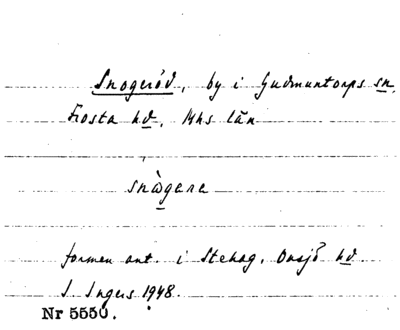 Snogeröd, by i Gudmuntorps sn,
Frosta hd, Mhs län
snàgera
formen ant. i Stehag, Onsjö hd
I. Ingers 1948.
Nr 5550.